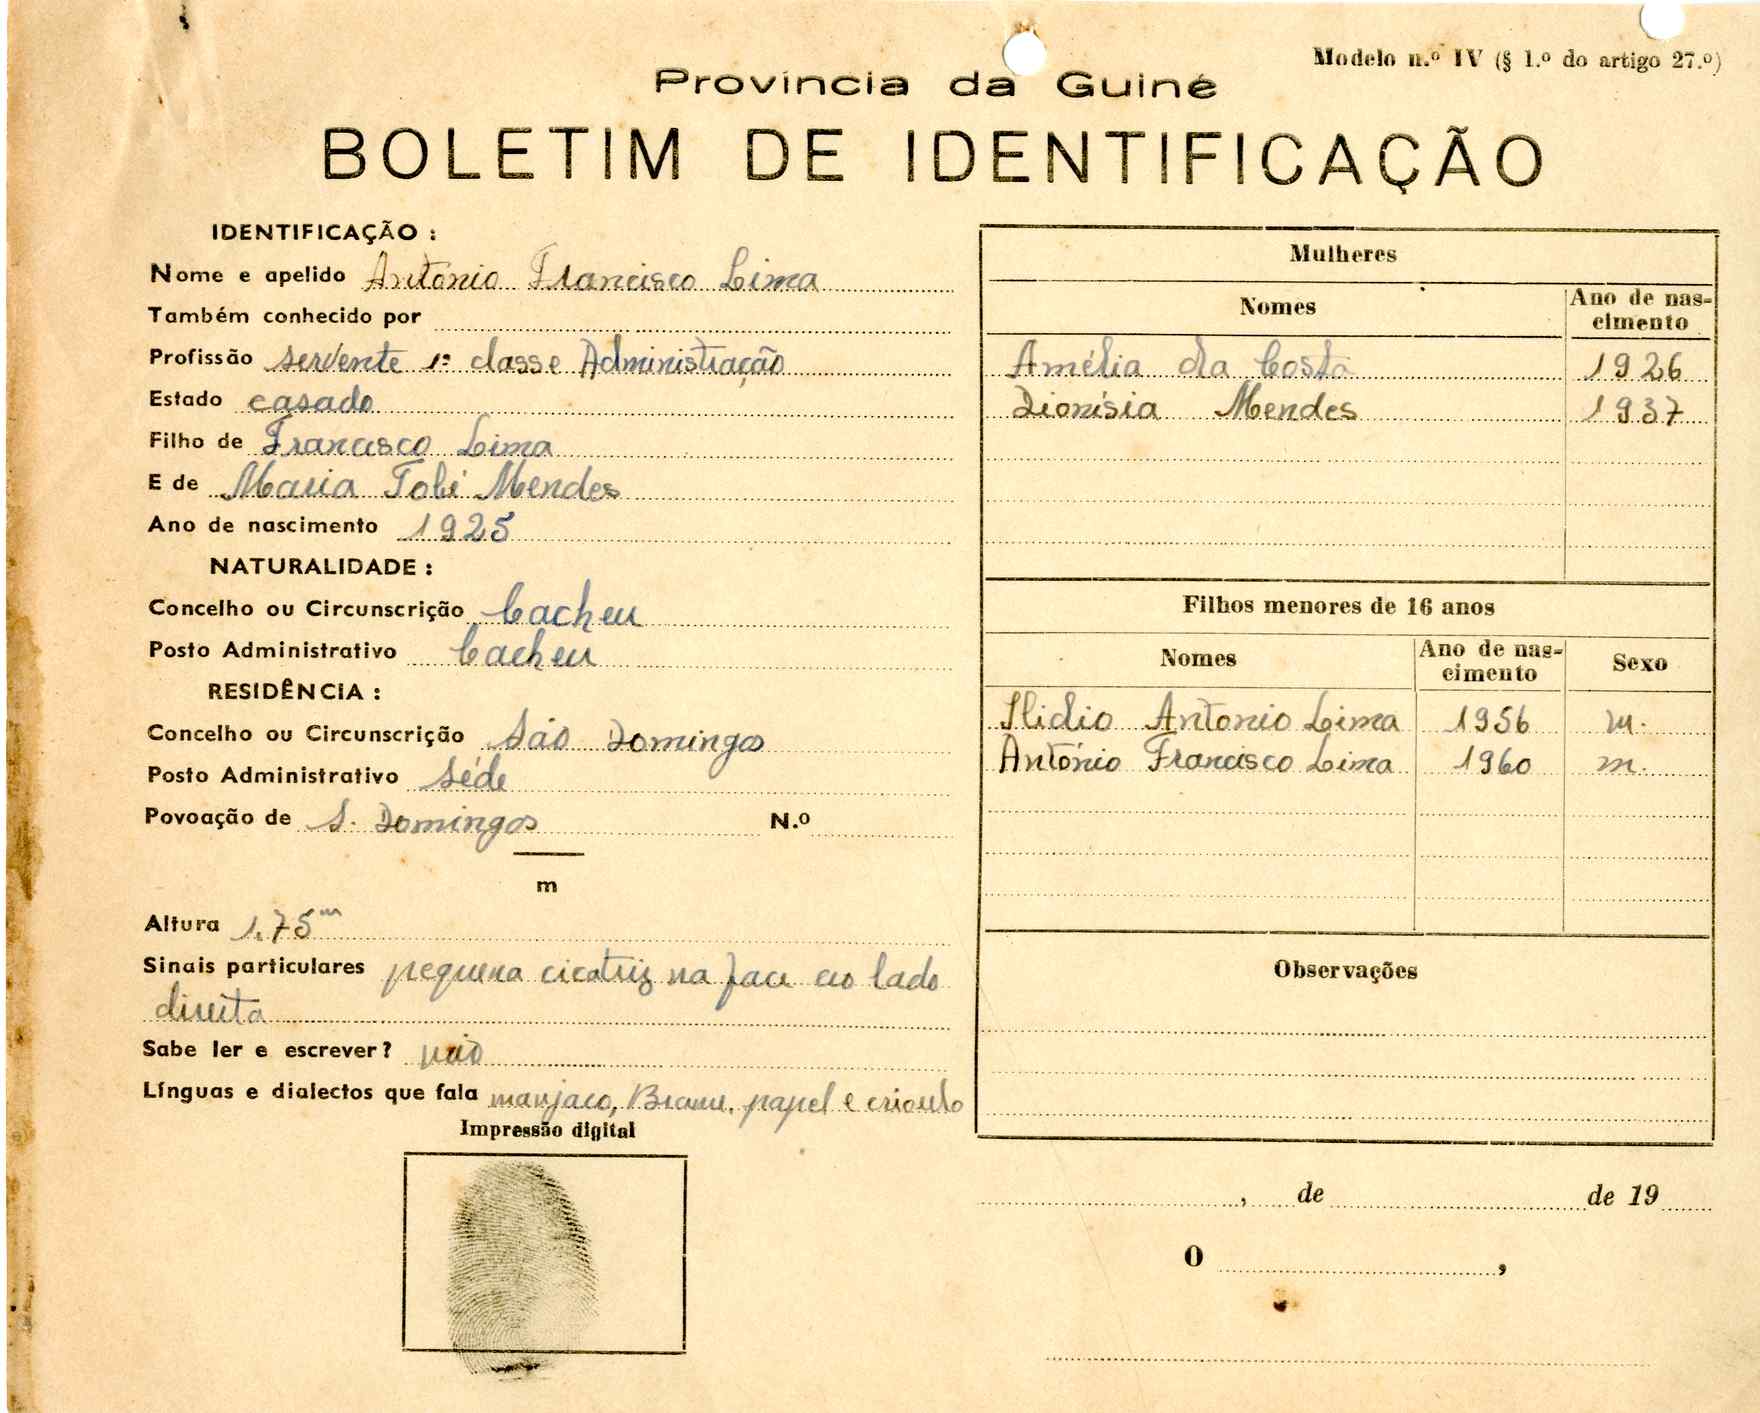 Modelo n.º IV (§ 1.º do artigo 27.º)
Província da Guiné
BOLETIM DE IDENTIFICAÇÃO
IDENTIFICAÇÃO :
Nome e apelido António Francisco Lima
Também conhecido por
Profissão servente 1ª classe Administração
Estado casado
Filho de Francisco Lima
E de Maria Tobi Mendes
Ano de nascimento 1925
NATURALIDADE :
Concelho ou Circunscrição Cacheu
Posto Administrativo Cacheu
RESIDÊNCIA :
Concelho ou Circunscrição São Domingos
Posto Administrativo Séde
Povoação de S. Domingos N.º
m
Altura 1.75m
Sinais particulares pequena cicatriz na face ao lado
direita
Sabe ler e escrever? não
Línguas e dialectos que fala manjaco, Brame, papel e crioulo
Impressão digital
Mulheres
Nomes Ano de nas-
cimento
Amélia da Costa 1926
Dionísia Mendes 1937
Filhos menores de 16 anos
Nomes Ano de nas-
cimento Sexo
Ilidio Antonio Lima 1956 m.
António Francisco Lima 1960 m.
Observações
, de de 19
O ,